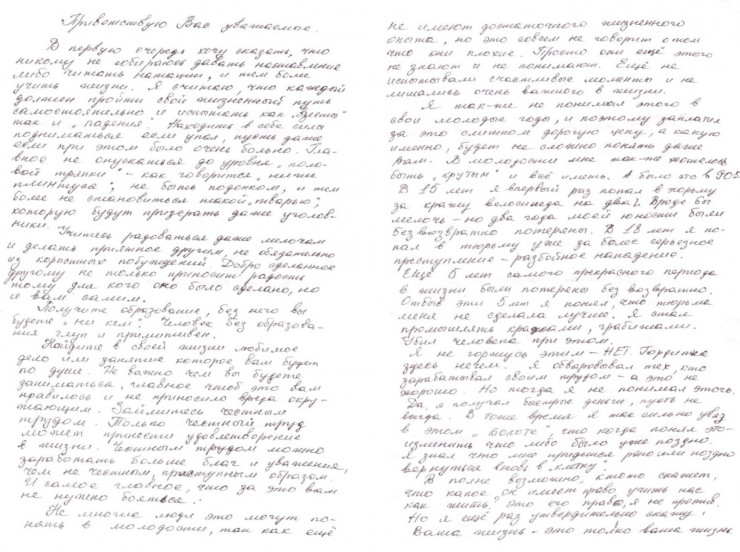 Приветствую Вас уважаемые.
В первую очередь хочу сказать, что
никому не собираюсь давать наставление
либо читать натации, и тем более
учить жизни. Я считаю, что каждый
должен пройти свой жизненный путь
самостоятельно и испытать как „Взлёты"
так и „падения". Находить в себе силы
подниматься если упал, пусть даже
если при этом было очень больно. Гла-
вное не опускаться до уровня „поло-
вой тряпки" - как говорится „ниже
плинтуса"; не быть подонком, и тем
более не становиться такой „тварью",
которую будут призерать даже уголов-
ники.
Учитесь радоваться даже мелочам
и делать приятное другим, не обязательно
из корыстных побуждений. Добро сделанное
другому не только приносит радость
тому для кого оно было сделано, но
и вам самим.
Получите образование, без него вы
будете „ни кем". Человек без образова-
ния глуп и примитивен.
Найдите в своей жизни любимое
дело или занятие которое вам будет
по душе. Не важно чем вы будете
заниматься, главное чтоб это вам
нравилось и не приносило вреда окру-
жающим. Займитесь честным
трудом. Только честный труд
может принести удовлетворение
в жизни. Честным трудом можно
заработать больше благ и уважения,
чем не честным, преступным образом.
И самое главное, что за это вам
не нужно бояться.
Не многие люди это могут по-
нять в молодости, так как ещё
не имеют достаточного жизненного
опыта, но это совсем не говорит о том
что они плохие. Просто они ещё этого
не знают и не понимают. Ещё не
испытывали счастливые моменты и не
лишались очень важного в жизни.
Я так-же не понимал этого в
свои молодые годы, и поэтому заплатил
за это слишком дорогую цену, а какую
именно, будет не сложно понять даже
Вам. В молодости мне так-же хотелось
быть „крутым" и всё иметь. А было это в 90х
В 15 лет я впервой раз попал в тюрьму
за кражу велосипеда на два г. Вроде бы
мелочь - но два года моей юности были
безвозвратно потеряны. В 18 лет я по-
пал в тюрьму уже за более серьезное
преступление - разбойное нападение.
Ещё 5 лет самого прекрасного периода
в жизни были потеряно без возвратно.
Отбыв эти 5 лет я понял, что тюрьма
меня не сделала лучше. Я стал
промышлять кражами, грабежами.
Убил человека при этом.
Я не горжусь этим - НЕТ. Гордится
здесь нечем. Я обворовывал тех, кто
зарабатывал своим трудом - а это не
хорошо. Но тогда я не понимал этого.
Да, я получал быстрые деньги, пусть не
всегда. В тоже время я так сильно увяз
в этом „болоте", что когда понял то-
изменить что либо было уже поздно.
Я знал что мне придется рано или поздно
вернуться вновь в „клетку".
В полне возможно, кто то скажет,
что какое он имеет право учить нас
как жить, это его право, я не против.
Но я ещё раз утвердительно скажу:
Ваша жизнь - это только ваша жизнь